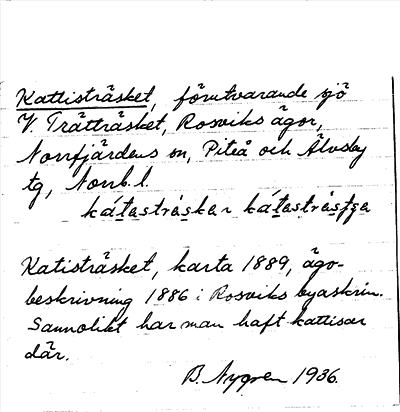 Kattisträsket, förutvarande sjö
V. Trätträsket, Rosviks ägor,
Norrfjärdens sn, Piteå och Älvsby
tg, Norrb. l.
kátastráskar kátastrásfza
Katisträsket, karta 1889, ägo-
beskrivning 1886 i Rosviks byaskrin.
Sannolikt har man haft kattisar
där.
B. Nygren 1936.